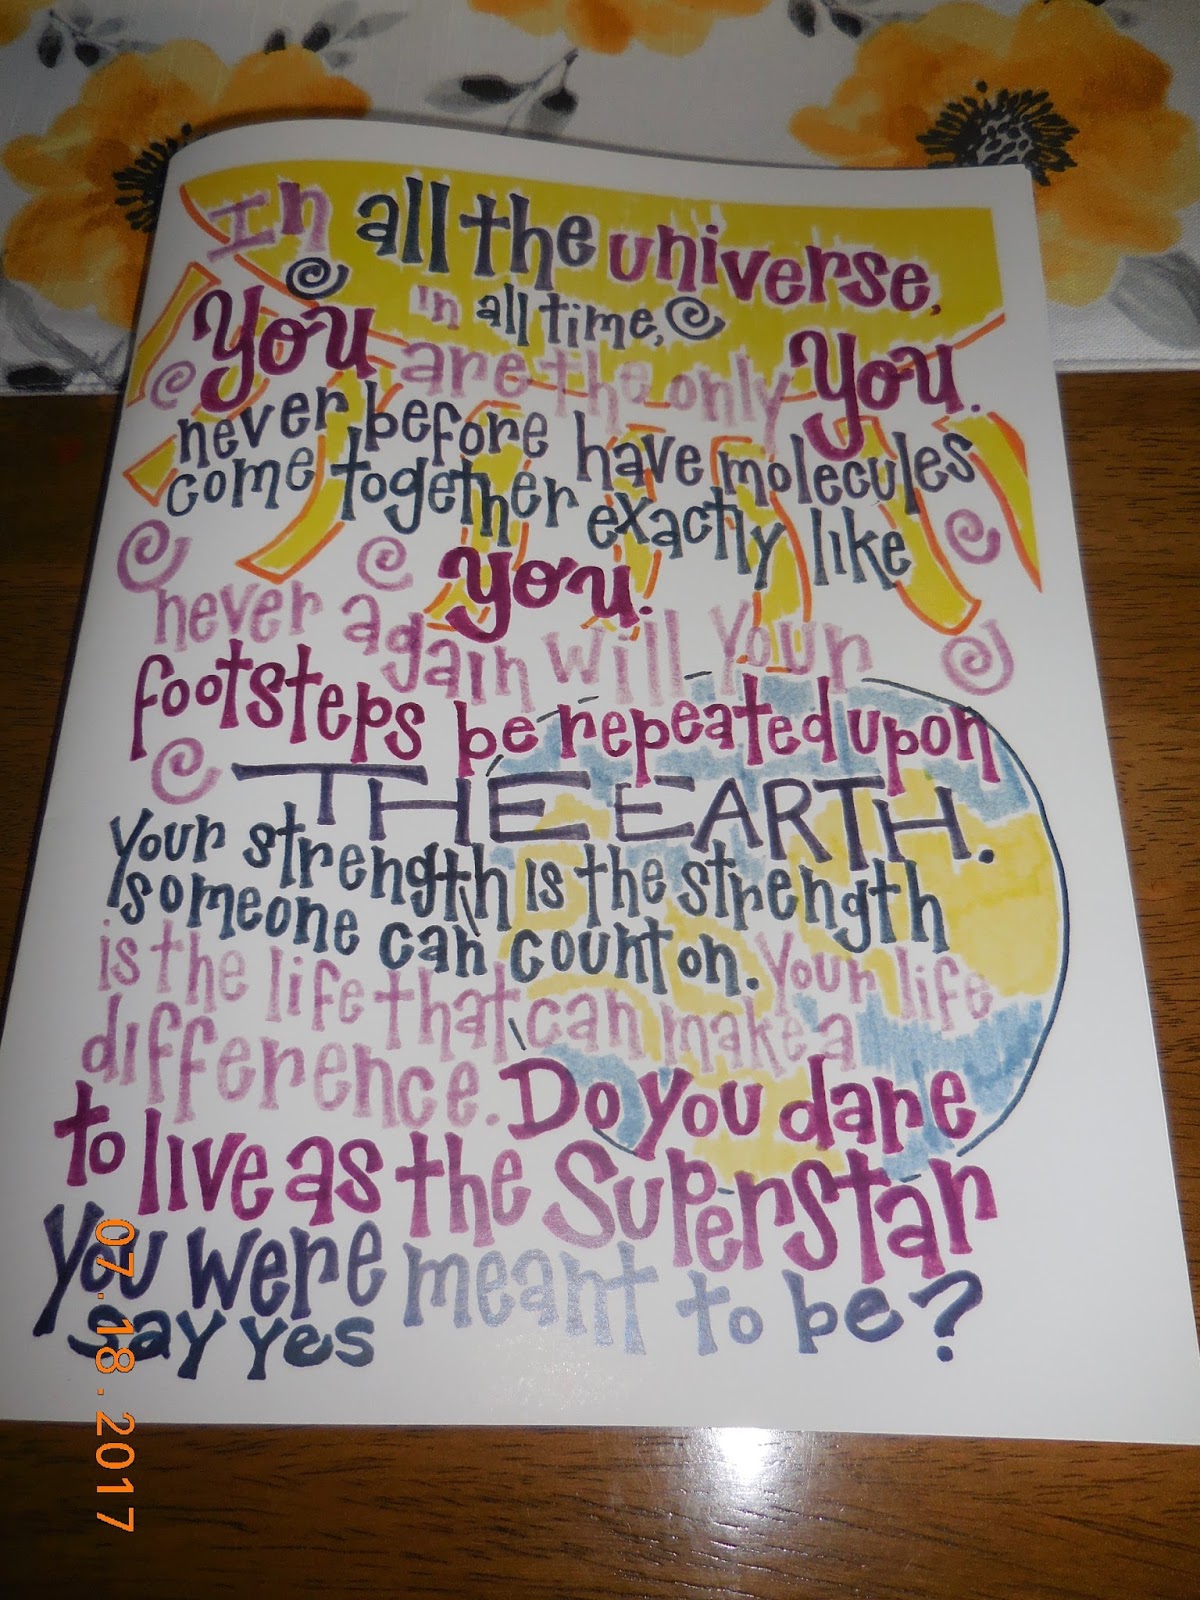 In all the universe,
in all time,
You are the only You.
never before have molecules
come together exactly like
you.
never again will your
footsteps be repeated upon
THE EARTH.
Your strength is the strength
someone can count on. Your life
is the life that can make a
difference. Do you dare
to live as the Superstar
You were meant to be?
say yes
07.18.2017